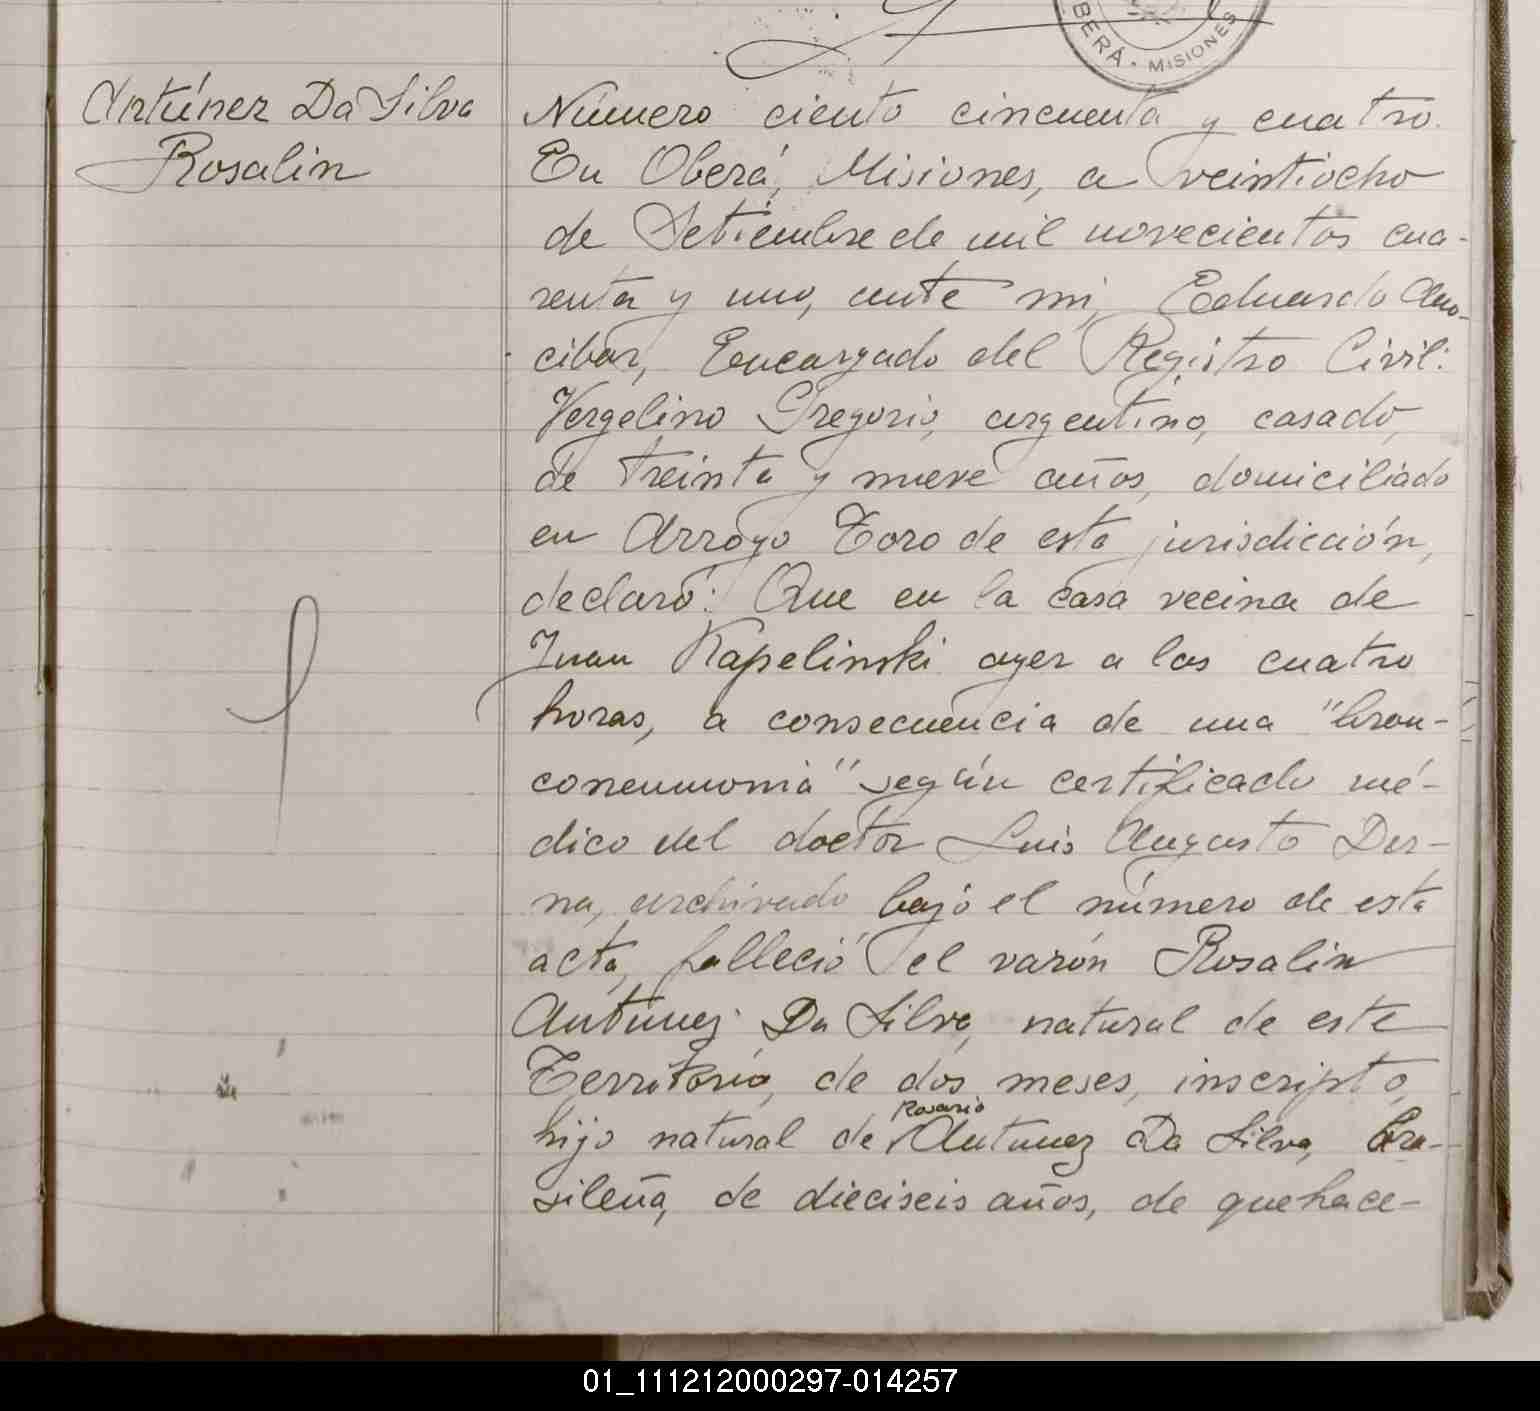 BERÁ · MISIONES
Antúnez Da Silva
Rosalin
Número ciento cincuenta y cuatro.
En Oberá, Misiones, a veintiocho
de Setiembre de mil novecientos cua-
renta y uno, ante mi, Eduardo Ano-
cibar, Encargado del Registro Civil:
Vergelino Gregorio, argentino, casado,
de treinta y nueve años, domiciliado
en Arroyo Toro de esta jurisdicción,
declaró: Que en la casa vecina de
Juan Kapelinski ayer a las cuatro
horas, a consecuencia de una "bron-
coneumonia" según certificado mé-
dico del doctor Luis Augusto Der-
na, archivado bajo el número de esta
acta, falleció el varón Rosalin
Antunez Da Silva, natural de este
Territorio, de dos meses, inscripto,
hijo natural de Rosario Antunez Da Silva, bra-
sileña, de dieciseis años, de quehace-
01_111212000297-014257